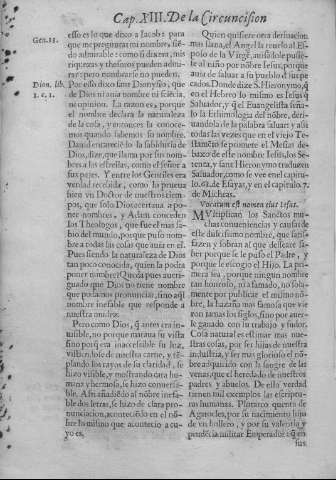 Cap. XIII. De la Circuncision
Gen. 32.
esso es lo que dixo a Jacob: para
que me preguntas mi nombre, siẽ-
do admirable: como si dixera, mis
riquezas y thesoros pueden ado-
rarse: pero nombrarse no pueden.
Dion. lib.
1. c. 1.
Por esso dixo sant Dionysio, que
de Dios ni auia nombre ni sciẽcia,
ni opinion. La razon es, porque
el nombre declara la naturaleza
de la cosa, y entonces la conoce-
mos quando sabemos su nombre.
Dauid encareciẽdo la sabiduria de
Dios, dize, que llama por sus nom-
bres a las estrellas, como el señor a
sus pajes. Y entre los Gentiles era
verdad recebida, como lo prueua
bien vn Doctor de nuestros tiem-
pos, que solo Dios acertaua a po-
ner nombres, y Adam conceden
los Theologos, que fue el mas sa-
bio del mundo, porque puso nom-
bre a todas las cosas que auia en el.
Pues siendo la naturaleza de Dios
tan poco conocida, quien la podra
poner nombre? Queda pues aueri-
guado que Dios no tiene nombre
que podamos pronunciar, sino aql̃
nombre inefable que responde a
nuestra rudez.
Pero como Dios, q̃ antes era in-
uisible, no porque natura su vista
sino porq̃ era inaccesible su luz,
vistiendose de nuestra carne, y tẽ-
plando los rayos de su claridad, se
hizo visible, y mostrando cara hu-
mana y hermosa, se hizo conuersa-
ble. Assi añadiẽdo al nõbre inefa-
ble dos letras, se hizo de clara pro-
nunciacion, aconteciẽdo en el nõ-
bre lo mismo que acontecio a cu-
yo es.
Quien quisiere otra deriuacion
mas llana, el Angel la reuelo al Es-
poso de la Virgẽ, auisãdole pusie-
se al niño por nõbre Iesus, porque
auia de saluar a su pueblo d sus pe
cados. Donde dize S. Hieronymo, q̃
en el hebreo lo mismo es Iesus q̃
Saluador, y q̃ el Euangelista seña-
lo la Ethimologia del nõbre, deri-
uandola de la palabra saluar: y assi
todas las vezes que en el viejo Te-
stamẽto se promete el Messias de-
baxo deste nombre Iesus, los Se-
tenta, y sant Hieronymo traduzen
Saluador, como se vee en el capitu-
lo. 62. de Esayas, y en el capitulo 7.
de Micheas.
Vocatum est nomen eius Iesus.
MVltiplican los Sanctos mu-
chas conueniencias y causas de
este dulcissimo nombre, que satis-
fazen y sobran al que dessease sa-
ber porque se le puso el Padre, y
porque le escogio el Hijo. La pri-
mera sea, porque ningun nombre
tan honroso, ni afamado, no sola-
mente por publicar el mismo nõ-
bre, la hazaña mas famosa que vie
ron jamas los siglos, sino por auer-
le ganado con su trabajo y sudor.
Cosa natural es estimar mas nue-
stras cosas, por ser hijas de nuestra
industria, y ser mas glorioso el nõ-
bre adquirido con la sangre de las
venas, que el heredado de nuestros
padres y abuelos. De esta verdad
tienen mil exemplos las escriptu-
ras humanas. Plutarco quenta de
Agatocles, por su nacimiento hijo
de vn hollero, y por su valentia y
prudẽcia militar Emperador: q̃ en
sus